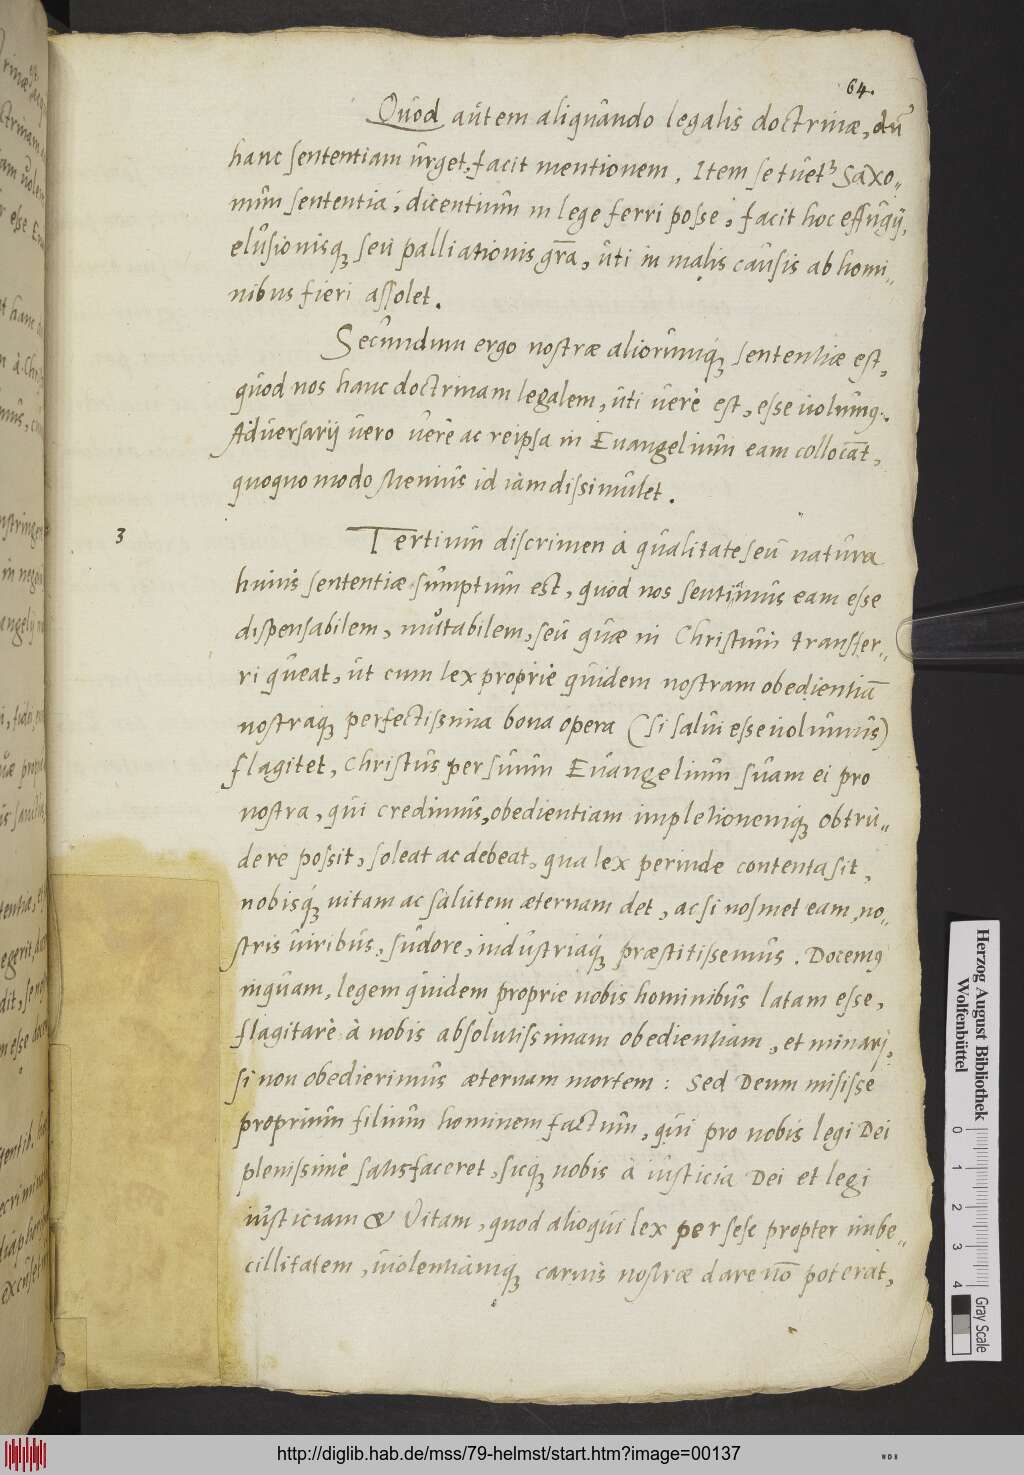 64.
Quod autem aliquando legalis doctrinæ, dū
hanc sententiam urget, facit mentionem. Item se tuet᷒ Saxo„
num sententia, dicentium in lege ferri posse, facit hoc effugij,
elusionisq; seu palliationis gr̄a, uti in malis causis ab homi„
nibus fieri assolet.
Secundum ergo nostræ aliorumq; sententiæ est,
quod nos hanc doctrinam legalem, uti verè est, esse uolumꝰ.
Adversarij vero verè ac reipsa in Evangelium eam collocāt,
quoquo modo Menius id iam dissimulet.
3
Tertium discrimen à qualitate seu natura
huius sententiæ sumptum est, quod nos sentimus eam esse
dispensabilem, mutabilem, seu quæ in Christum transfer„
ri queat, ut cum lex propriè quidem nostram obedientiā
nostraq; perfectissima bona opera (si salui esse uolumus)
flagitet, Christus per suum Euangelium suam ei pro
nostra, qui credimus, obedientiam impletionemq; obtru„
dere possit, soleat ac debeat, qua lex perinde contenta sit,
nobisq; uitam ac salutem æternam det, ac si nosmet eam, no„
stris uiribus, sudore, industriaq; præstitissemus. Docemꝰ
inquam, legem quidem proprie nobis hominibus latam esse,
flagitare à nobis absolutissimam obedientiam, et minari,
si non obedierimus æternam mortem: Sed Deum misisse
proprium filium hominem factum, qui pro nobis legi Dei
plenissimè satisfaceret, sicq; nobis à iusticia Dei et legi
iusticiam & Vitam, quod alioqui lex per sese propter imbe„
cillitatem, uiolentiamq; carnis nostræ dare nō poterat,
Herzog August Bibliothek
Wolfenbüttel
0 1 2 3 4
Gray Scale
http://diglib.hab.de/mss/79-helmst/start.htm?image=00137